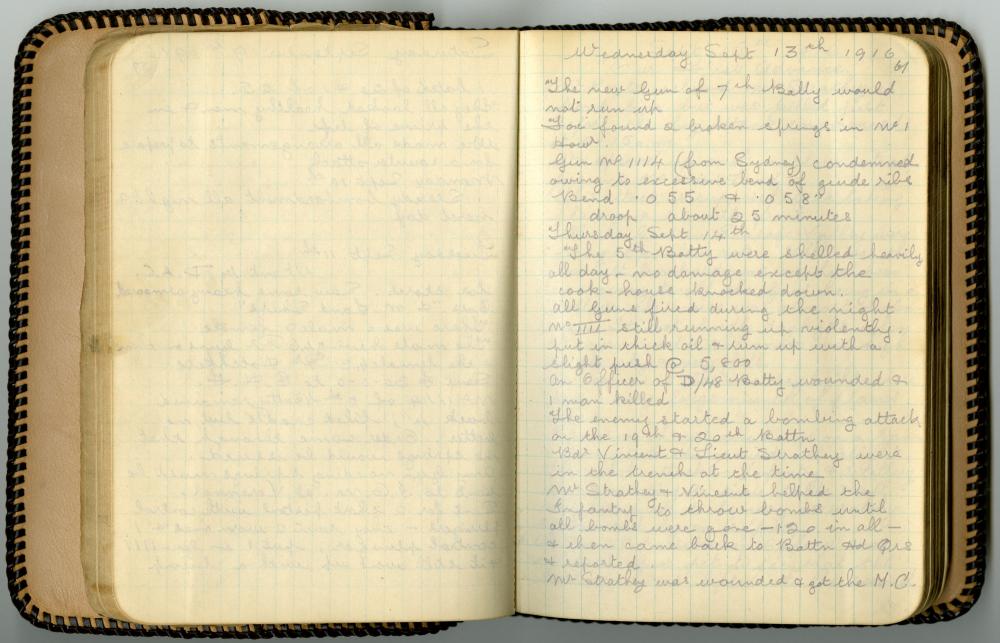 Wednesday Sept 13th 1916
61
The new Gun of 7th Batty would
not run up
"Fox" found 2 broken springs in No 1
How.
Gun No 1114 (from Sydney) condemned
owing to excessive bend of guide ribs
Bend .055 & .058"
droop about 25 minutes
Thursday Sept 14th
The 5th Batty were shelled heavily
all day - no damage except the
cook-house knocked down.
all Guns fired during the night
No IIII still running up violently.
put in thick oil & run up with a
slight push @ 5,800
An Officer of D/48 Batty wounded &
1 man killed
The enemy started a bombing attack
on the 19th & 20th Battn
Bdr Vincent & Lieut Strathey were
in the trench at the time
Mr Strathey & Vincent helped the
Infantry to throw bombs until
all bombs were gone - 120 in all -
& then came back to Battn Hd Qrs
& reported.
Mr Strathey was wounded & got the M.C.